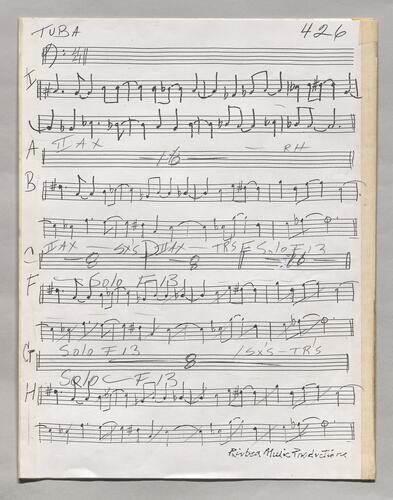 TUBA 426
I
A II AX 16 RH
B
C II AX SX'S D II AX TRS E Solo F 13
8 8 16
F Solo F 13
G Solo F 13 8 / SX'S - TR'S
H Solo F 13
Rivbea Music Productions